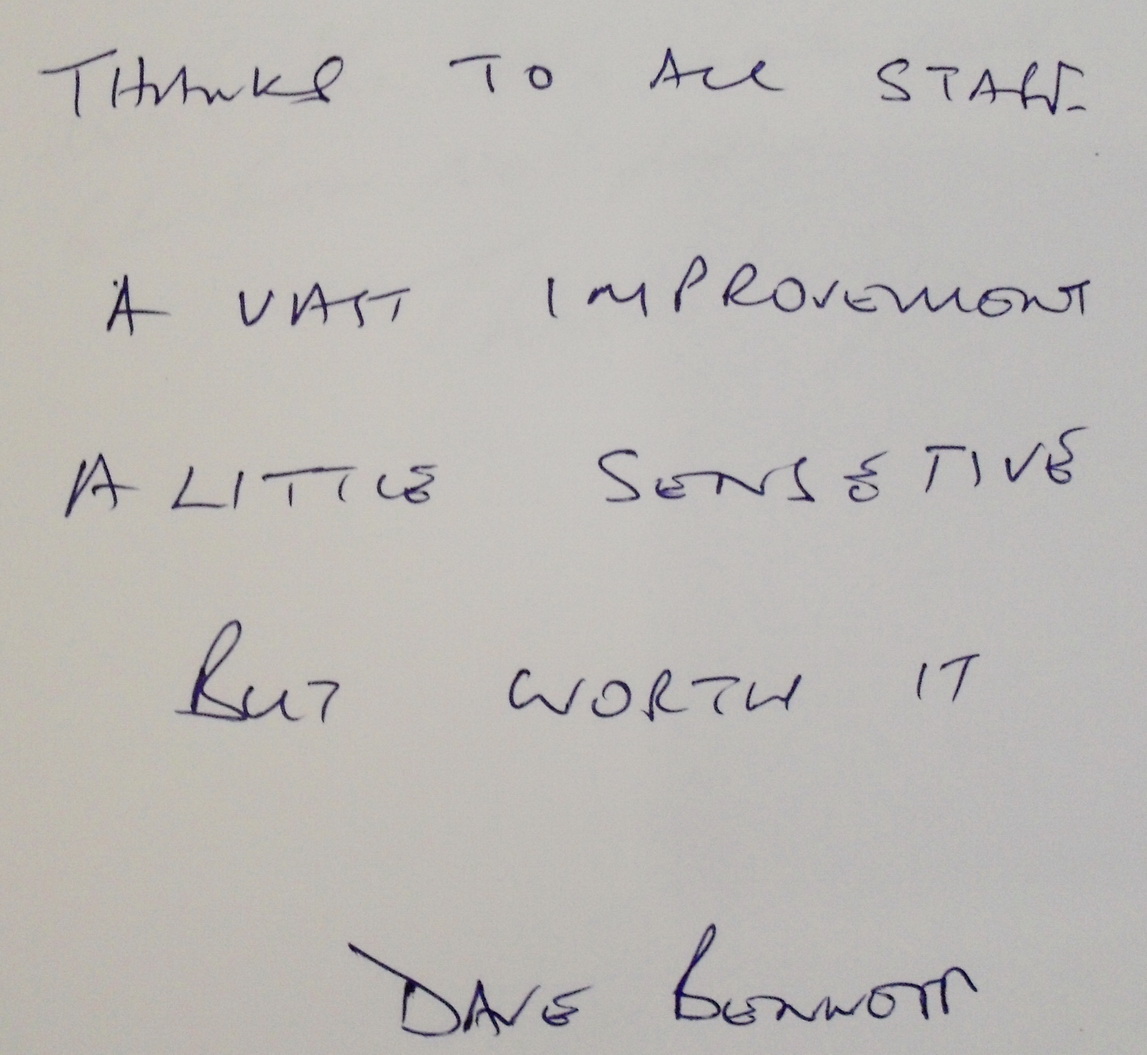 THANKS TO ALL STAFF
A VAST IMPROVEMENT
A LITTLE SENSETIVE
BUT WORTH IT
DAVE BENNETT